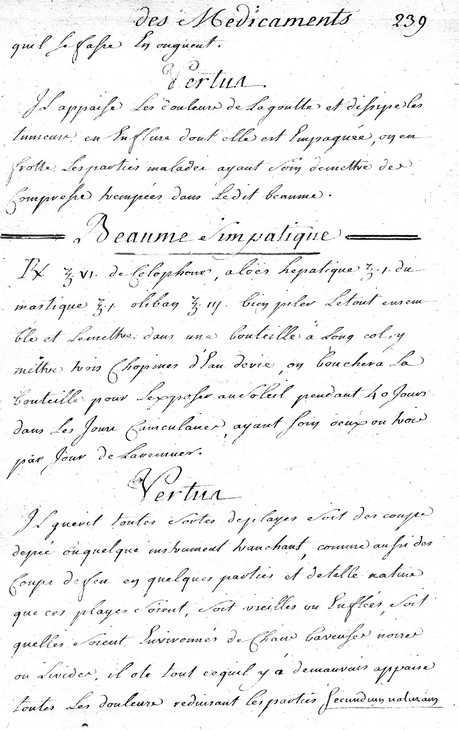 des Medicaments 239
quil se fasse En onguent.
Vertus
Il appaise Les douleurs de La goutte et dissipe les
tumeurs en Enflure dont elle est Empaquée, on en
frotte Les parties malades ayant Soin de mettre des
Compresse trempées dans Ledit beaume.
Beaume Simpatique
℞ ʒ VI. de Colophone, aloës hepatique ʒ. 1. du
mastique ʒ 1. oliban ʒ. III. bien piler Letout ensem
ble et Lemettre dans une bouteille à Long col, y
mettre trois Chopines d'Eau devie, on bouchera La
bouteille pour L'exposer au Soleil pendant 40 Jours
dans Les Jours Caniculaires, ayant soin deux ou trois
par Jour de La remuer.
Vertus
Il guerit toutes Sortes de playes Soit des coups
depée ou quelque instrument tranchant, comme aussi des
Coups de feu en quelques parties et de telle nature
que ces playes Soient, Soit vieilles ou Enflées, Soit
quelles Soient Environnés de Chair baveuse noires
ou Livides, il ote tout cequil y à de mauvais appaise
toutes Les douleurs reduisant les parties Secundum naturam